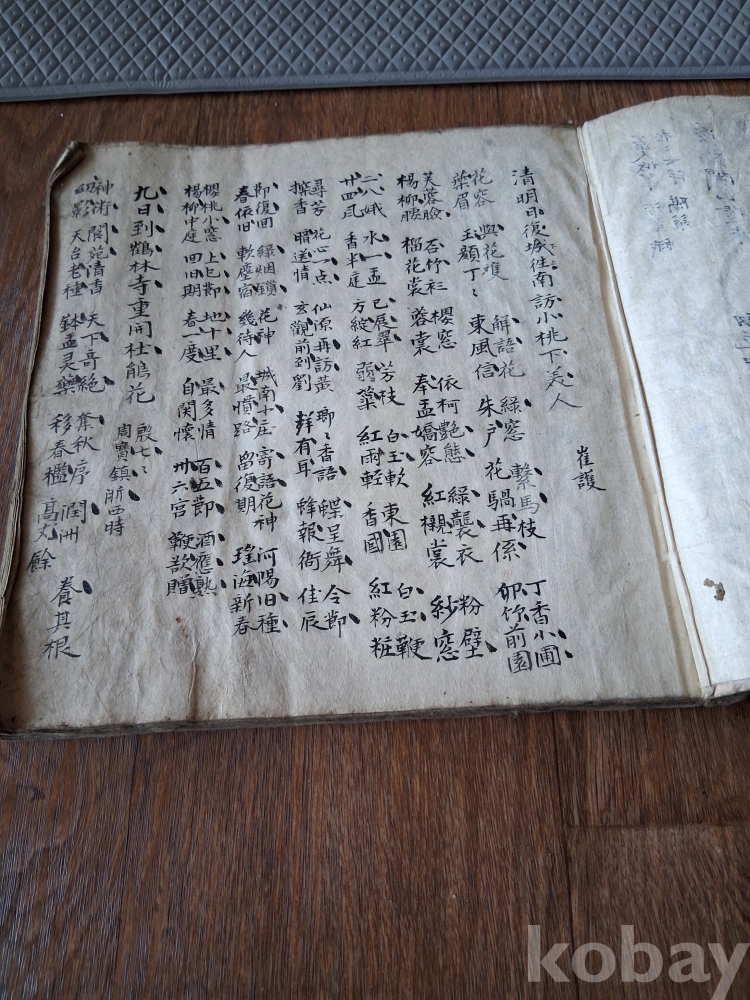 清明日復城往南訪小桃下美人
崔護
花容 與花難 解語花 綠窓 繫馬枝 丁香小圃
葉眉 玉顔丁丶 東風信 朱戶 花騧再係 前園
芙蓉臉 杏竹衫 櫻窓 依柯艶態 綠襲衣 粉壁
楊柳腰 榴花裳 蓉裳 奉盂嬌容 紅襯裳 紗窓
二八娥 水一盂 已展翠 芳枝 白玉軟 東園 白玉鞭
廿四風 香半庭 方綻紅 弱葉 紅雨輕 香國 紅粉粧
尋芳 花心一点 仙源再訪黃 瑯丶香語 蝶呈舞 令節
探香 暗送情 玄觀前到劉 有耳 蜂報衙 佳辰
節復回 綠烟鎖 花神 城南十庄 寄語花神 河陽旧種
春依旧 軟塵宿 幾待人 最憤路 留復期 瑤海新春
櫻桃小窓 上巳節 地十里 最多情 百五節 酒應熟
楊柳中庭 回旧期 春一度 自関懷 卅六宮 鞭欲贈
九日到鶴林寺重開杜鵑花
殷七丶
周寶鎭 時
神術 閬苑清香 天下奇絕 奪秋序 潤洲 養其根
幻影 天台老種 鉢盂灵藥 移春檻 高丈餘
kobay